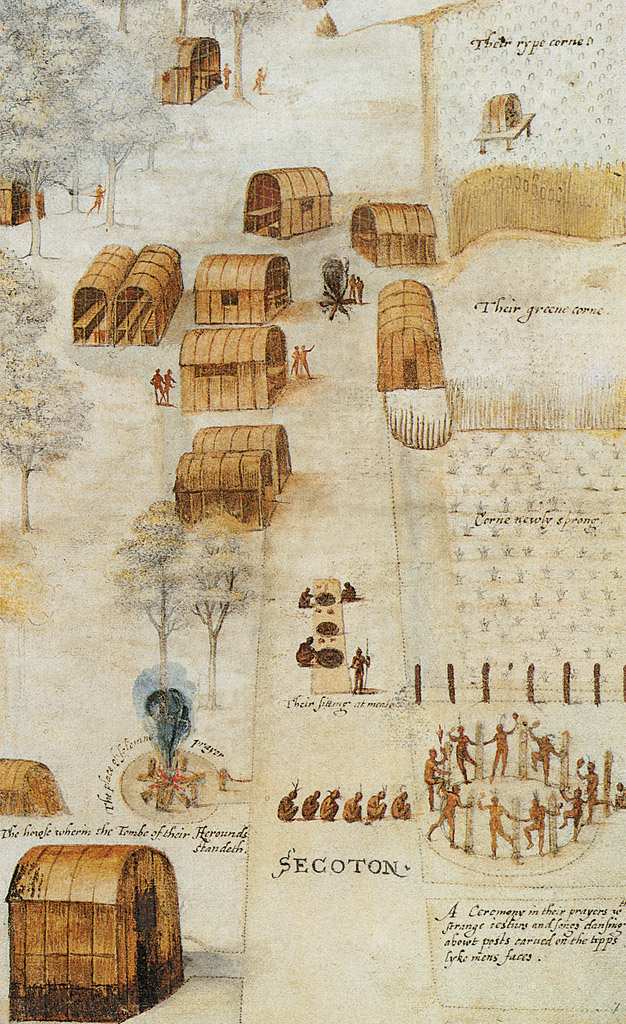 Their rype corne.
Their greene corne.
Corne newly sprong.
Their sitting at meate.
The place of solemne prayer
The howse wherin the Tombe of their Herounds
standeth.
SECOTON.
A Ceremony in their prayers wth
strange iesturs and songs dansing
abowt posts carued on the topps
lyke mens faces.